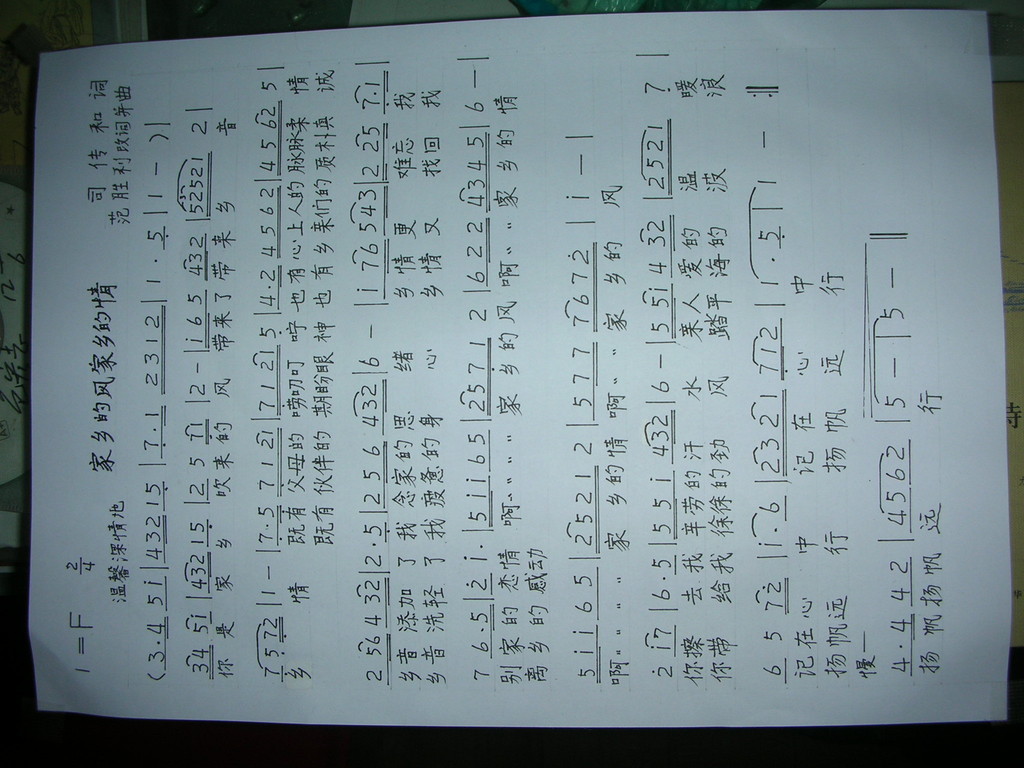 家乡的风家乡的情
1=F 2/4
司传和词
温馨深情地
范胜利改词并曲
(3·4 5 i|43215|7·1 2312|1·5|1 -)|
34 5i|43215|2 5 71|2 -|i 6 5 432|52521 2|
你是 家 乡 吹来的 风 带来了 带来 乡 音
7572|1 -|7·5 7 1 2|7 1 2 5|4·2 4562|4 5 62 5|
乡 情 既有 父母的 唠叨叮咛 也有心上人的脉脉柔情
既有 伙伴的 期盼眼神 也有乡亲们的质朴真诚
2 564 32|2·5|2 5 6 432|6 -|i 76543|2 25 7·1|
乡音添加了我 念家的思 绪 乡情更 难忘 我
乡音洗轻了我 疲惫的身 心 乡情又 找回 我
7 6·5|2 i·|5 i i 65|2571 2|622 4345|6 -|
别家的恋情 啊〃〃〃〃家乡的风 啊〃〃家乡的情
离乡的感动
5 i i 6 5|2521 2|577 7672|i -|
啊〃〃〃〃 家 乡的情 啊〃〃 家 乡的 风
2 i7|6·5|5 5 i 432|6 -|5 5i 4 32|2521 7|
你擦 去我 辛劳的汗 水 亲人爱的 温 暖
你带 给我 徐徐的劲 风 踏平海的 波 浪
6 5 72|i·6|2321 712|1·5|1 - :‖
记在心 中 记在 心 中
扬帆远 行 扬帆 远 行
慢—
4·4 4 2|4562|5 -|5 -‖
扬帆扬帆 远 行